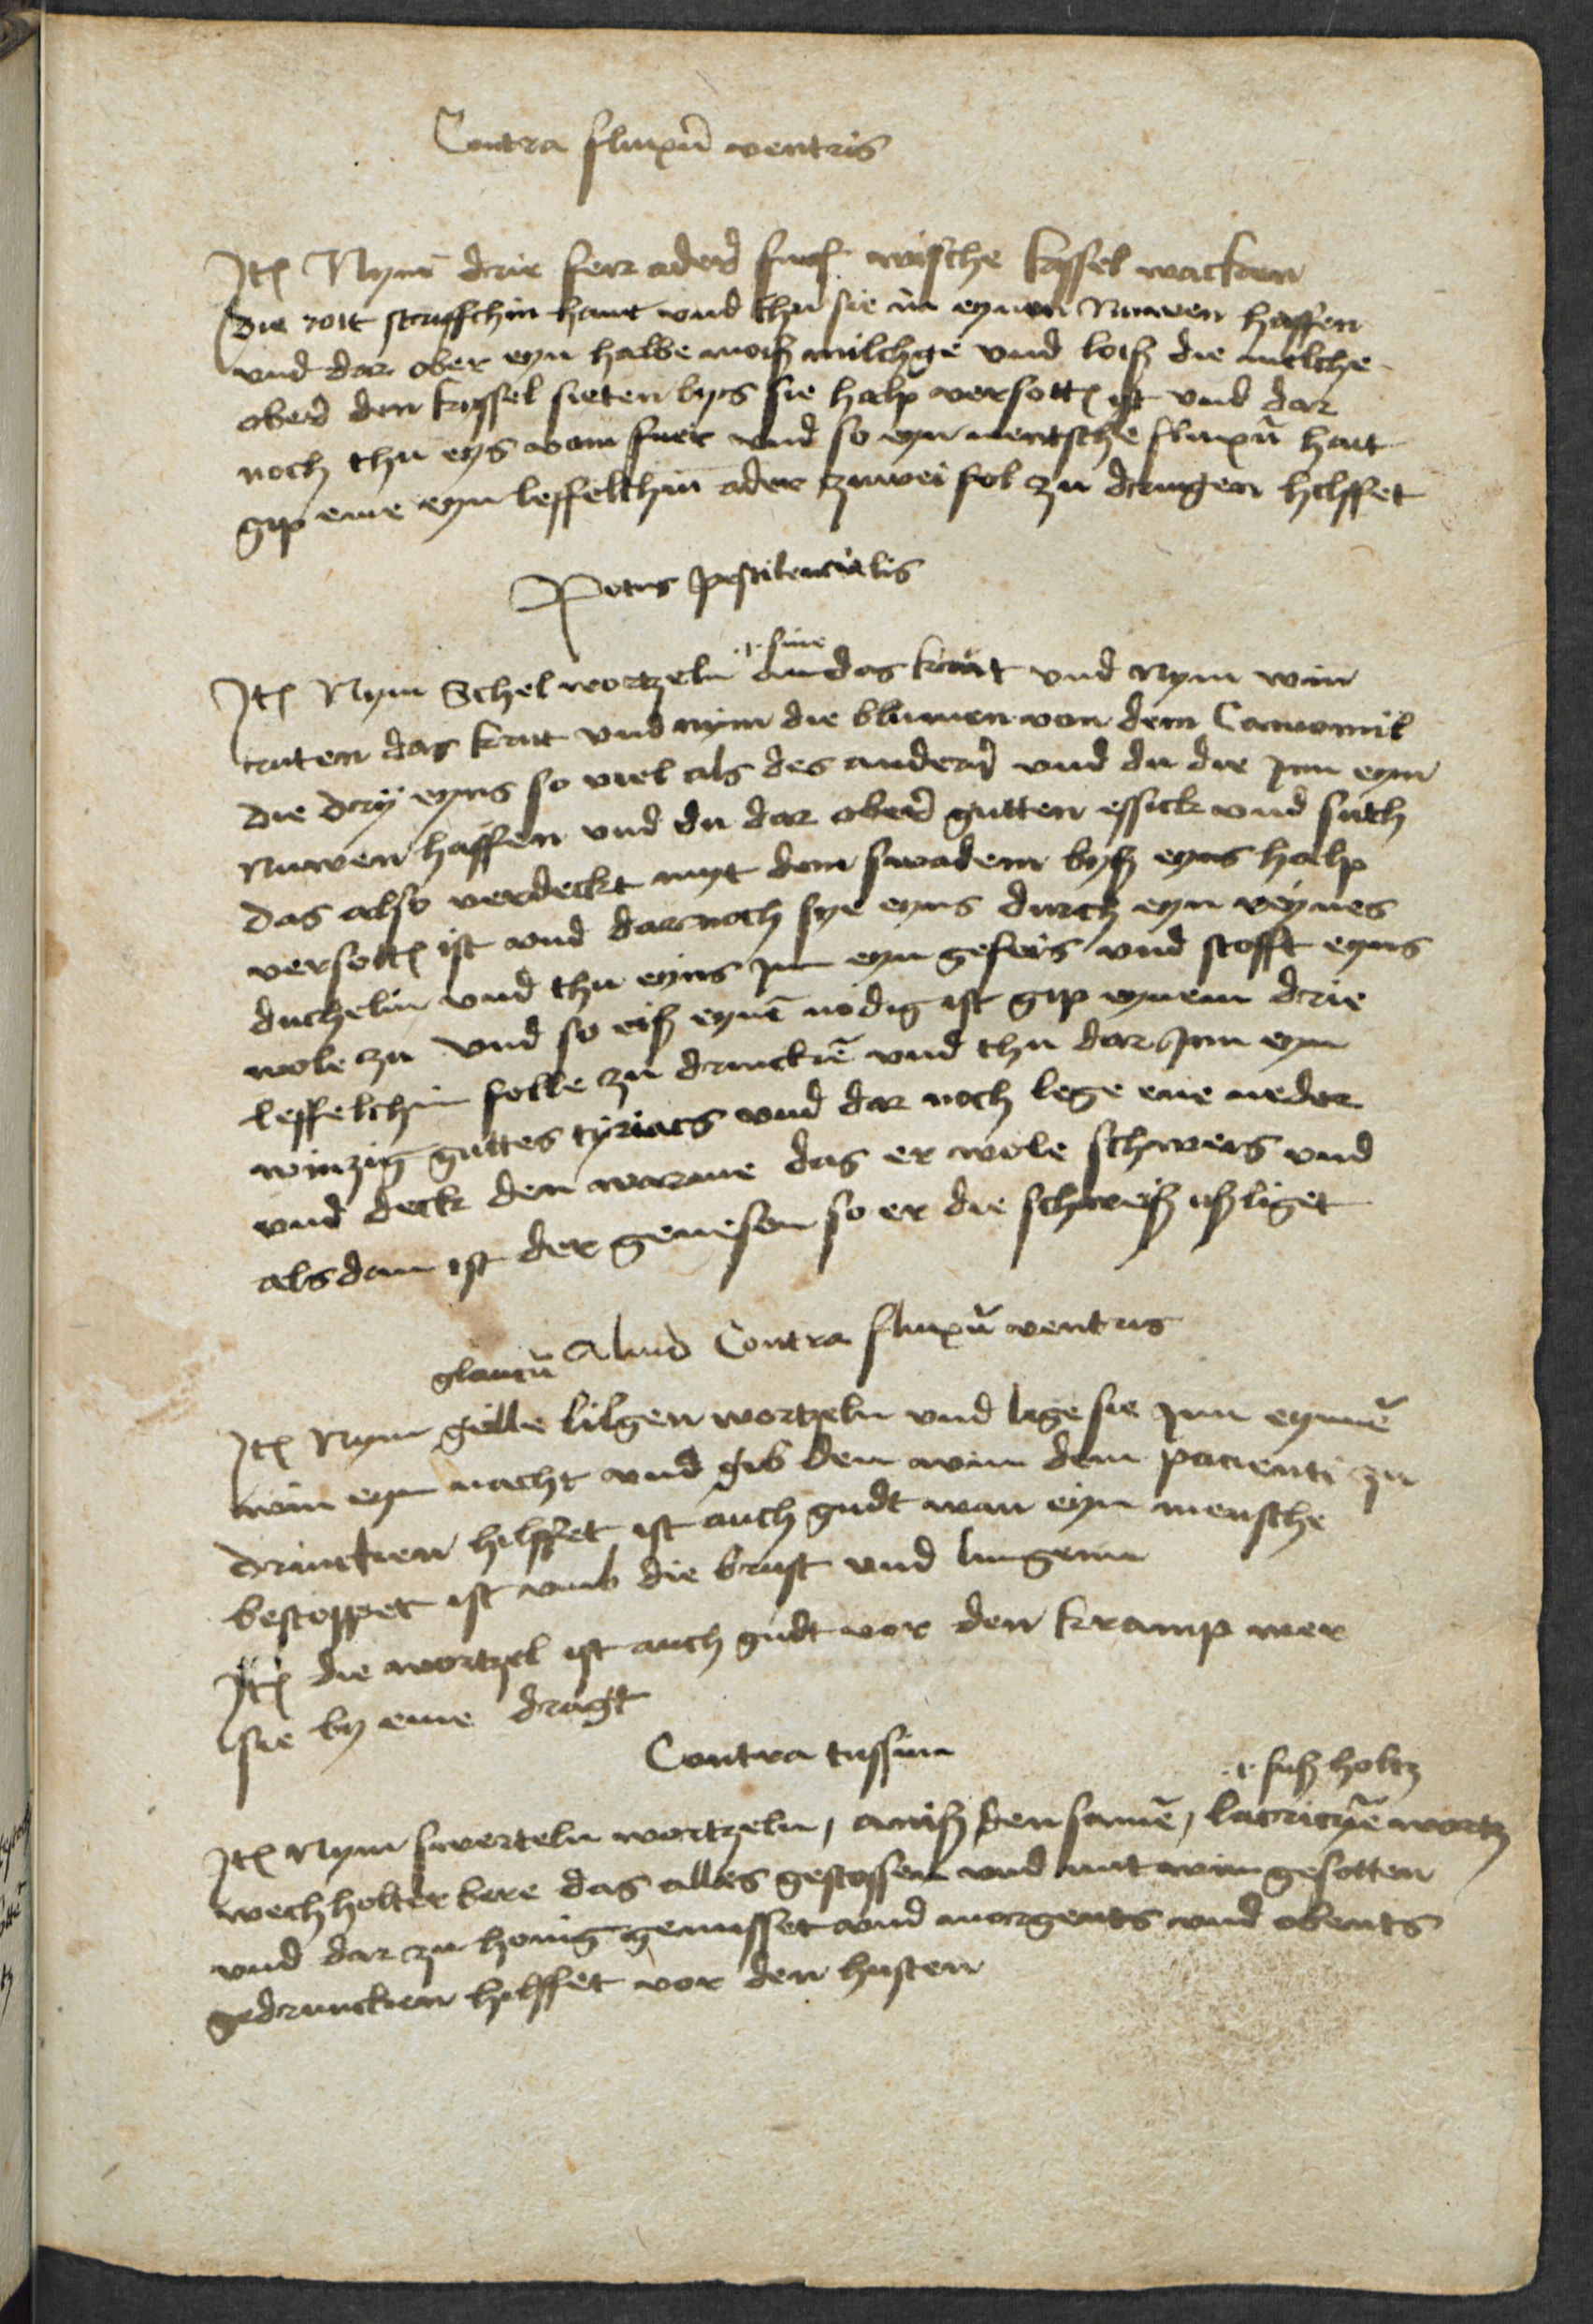 Contra fluxū ventris
Itē Nym drie ferr aderʼ funf wysche kyssel wacken
die roit struffchin hant und thu sie in eynen Nuwen haffen
und dar ober eyn halbe moiß milchge und loiß die milche
oberʼ den kyssel sieten bys sie halp versottē ist und dar
noch thu eys vom fuer und so eyn mentsche fluxū hait
gip eme eyn leffelchin ader zuwei fol zu dringen hilffet
Potus pestilencialis
.i. sine
Itē Nym Schel wortzeln an das krut und Nym win
ruten das krut und nym die blumen von dem Camomil
die dry eyns so viel als des anderʼ und du die jnn eyn
Nuwen haffen und du dar oberʼ gutten essick und suth
das also verdeckt myt dem swadem byß eyns halp
versottē ist und darnoch sye eyns durch eyn reynes
duchelin und thu eyns jn eyn gefeis und stofft eyns
wole zu und so eiß eynē nodig ist gip eynem drie
leffelchin folle zu drinckē und thu dar jnn eyn
winzig guttes tyriacs und dar noch lege ene neder
und deck den warme das er wole schweis und
alsdan ist der genesen so er die schweiß ußliget
glaucū Aliud Contra fluxū ventris
Itē Nym gelle lilgen wortzeln und lege sie jnn eynnē
win eyn nacht und gib den win dem pacienti zu
drincken hilffet ist auch gudt wan eyn mensche
bestoppet ist umb die brust und lungenn
Itē die wortzel ist auch gudt vor den kramp wer
sie by eme dragt
Contra tussim
.i. suß holtz
Itē Nym swerteln wortzeln, aniß den samē, lacricyē wortz
wechholter bere das alles gestossen und mit win gesotten
und dar zu honig gemisset und morgents und obents
gedruncken hilffet vor den husten